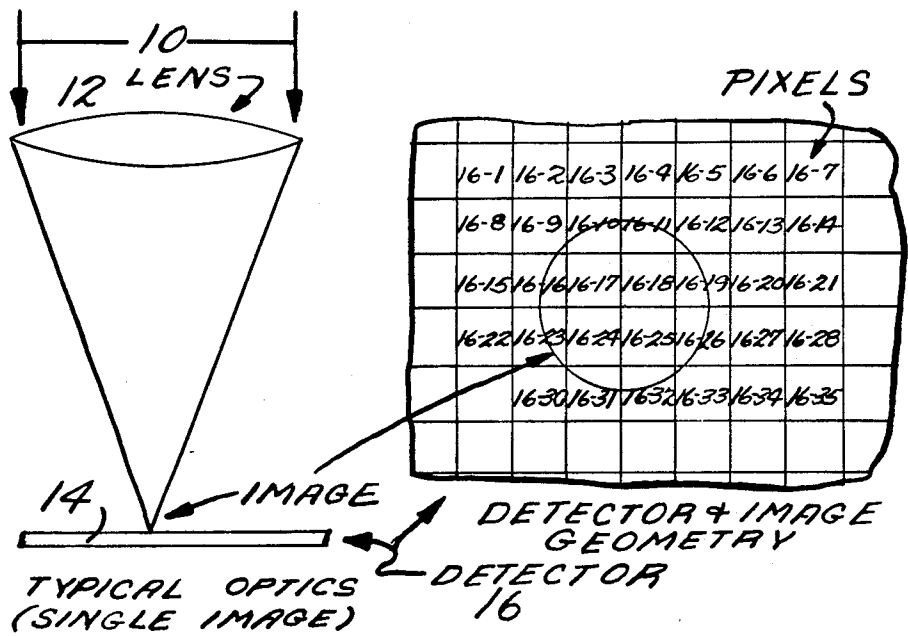 10
12 LENS
PIXELS
16-1 16-2 16-3 16-4 16-5 16-6 16-7
16-8 16-9 16-10 16-11 16-12 16-13 16-14
16-15 16-16 16-17 16-18 16-19 16-20 16-21
16-22 16-23 16-24 16-25 16-26 16-27 16-28
16-30 16-31 16-32 16-33 16-34 16-35
14
IMAGE
DETECTOR & IMAGE
GEOMETRY
DETECTOR
16
TYPICAL OPTICS
(SINGLE IMAGE)